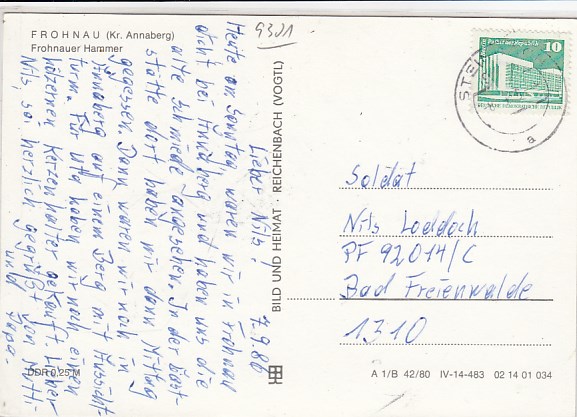 FROHNAU (Kr. Annaberg)
Frohnauer Hammer
9301
7.9.80
Lieber Nils!
Heute am Sonntag waren wir in Frohnau
dicht bei Annaberg und haben uns die
alte Schmiede angesehen. In der Gast-
stätte dort haben wir dann Mittag
gegessen. Dann waren wir noch in
Annaberg auf einem Berg mit Aussichts
turm. Für Uta haben wir noch einen
hölzernen Kerzenhalter gekauft. Lieber
Nils, sei herzlich gegrüßt von Mutti
und Papa.
DDR 0,25 M
BILD UND HEIMAT · REICHENBACH (VOGTL)
10
STE
a
Soldat
Nils Loddoch
PF 92014/C
Bad Freienwalde
1310
A 1/B 42/80 IV-14-483 02 14 01 034